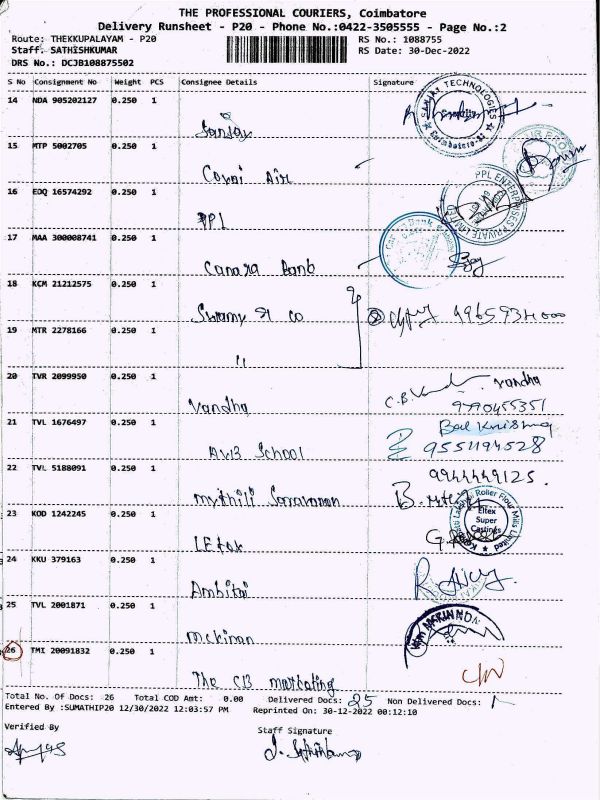 THE PROFESSIONAL COURIERS, Coimbatore
Delivery Runsheet - P20 - Phone No.:0422-3505555 - Page No.:2
Route: THEKKUPALAYAM - P20 RS No.: 1088755
Staff. SATHISHKUMAR RS Date: 30-Dec-2022
DRS No.: DCJB108875502
S No Consignment No Weight PCS Consignee Details Signature
14 NDA 905202127 0.250 1
Sanjay
SANJAY TECHNOLOGIES
Coimbatore
15 MTP 5002705 0.250 1
Air
16 EDQ 16574292 0.250 1
PPL
PPL ENTERPRISES PRIVATE LIMITED
17 MAA 300008741 0.250 1
Canara Bank
18 KCM 21212575 0.250 1
Swamy & co
19 MTR 2278166 0.250 1
"
20 TVR 2099950 0.250 1
Vandha
C.B. Vandha
9790455351
21 TVL 1676497 0.250 1
AVB School
Bal Krishna
9551194528
22 TVL 5188091 0.250 1
Mythili Saravanan
9944449125.
23 KOD 1242245 0.250 1
Roller Flour Mills Limited
Eltex
Super
Castings
24 KKU 379163 0.250 1
25 TVL 2001871 0.250 1
Mckinon
26 TMI 20091832 0.250 1
The CB marketing
Total No. Of Docs: 26 Total COD Amt: 0.00 Delivered Docs: 25 Non Delivered Docs: 1
Entered By :SUMATHIP20 12/30/2022 12:03:57 PM Reprinted On: 30-12-2022 00:12:10
Verified By Staff Signature